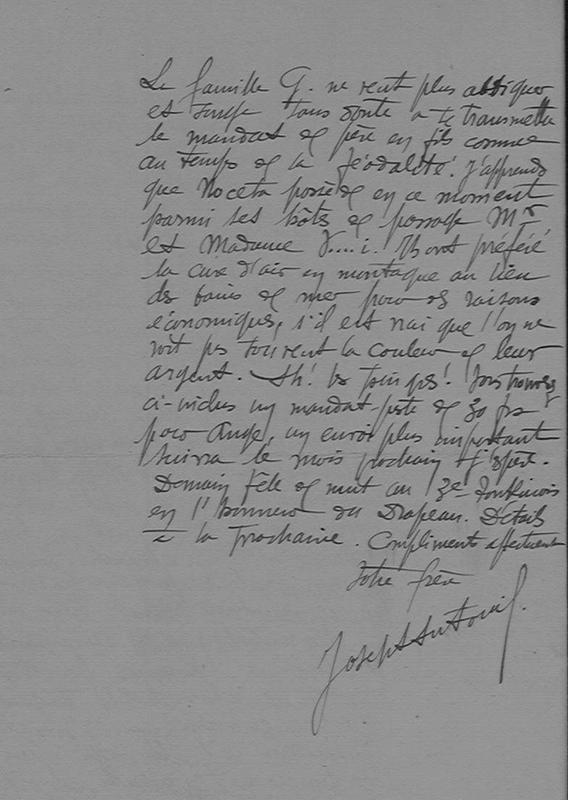 La famille G. ne veut plus abdiquer
et songe sans doute à se transmettre
le mandat de père en fils comme
au temps de la féodalité. J'apprends
que Noceta possède en ce moment
parmi ses hôtes de passage Mr
et Madame V....i. Ils ont préféré
la cure d'air en montagne au lieu
des bains de mer pour des raisons
économiques, s'il est vrai que l'on ne
voit pas souvent la couleur de leur
argent. Ah! les pingres! Vous trouverez
ci-inclus un mandat-poste de 30 frs
pour Ange, un envoi plus important
suivra le mois prochain j'espère.
Demain fête de nuit au 3e Tonkinois
en l'honneur du Drapeau. Détails
à la prochaine. Compliments affectueux
Votre frère
Joseph Antoine